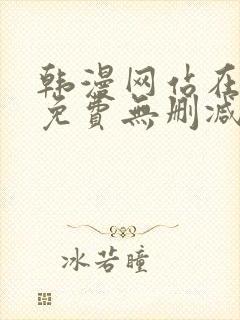 韩漫网站在
免費無删减
冰若瞳